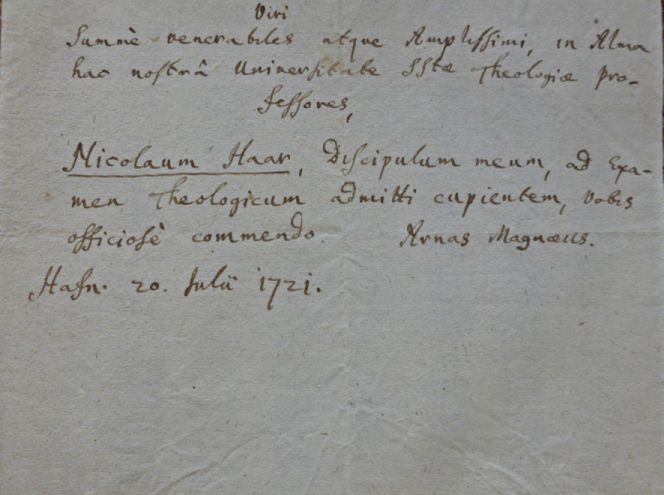 Viri
Summè venerabiles atque Amplissimi, in Alma
hac nostrâ Universitate SStæ Theologiæ Pro-
fessores,
Nicolaum Haar, Discipulum meum, ad Exa-
men Theologicum admitti cupientem, Vobis
officiosè commendo. Arnas Magnæus.
Hafn. 20. Julii 1721.